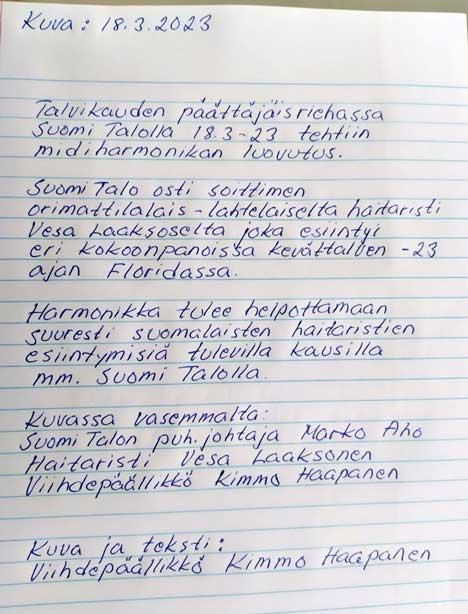 Kuva: 18.3.2023
Talvikauden päättäjäisriehassa
Suomi Talolla 18.3-23 tehtiin
midiharmonikan luovutus.
Suomi Talo osti soittimen
orimattilalais-lahtelaiselta haitaristi
Vesa Laaksoselta joka esiintyi
eri kokoonpanoissa kevättalven -23
ajan Floridassa.
Harmonikka tulee helpottamaan
suuresti suomalaisten haitaristien
esiintymisiä tulevilla kausilla
mm. Suomi Talolla.
Kuvassa vasemmalta:
Suomi Talon puh.johtaja Marko Aho
Haitaristi Vesa Laaksonen
Viihdepäällikkö Kimmo Haapanen
Kuva ja teksti:
Viihdepäällikkö Kimmo Haapanen